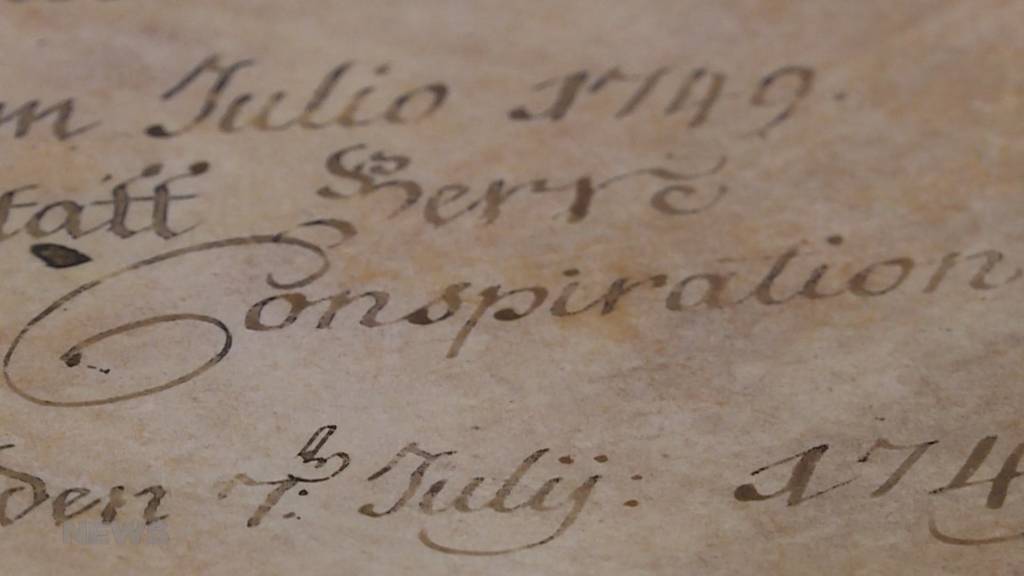 Julio 1749.
tatt Herrē
Conspiration
den 7: Julij: 174
NEWS